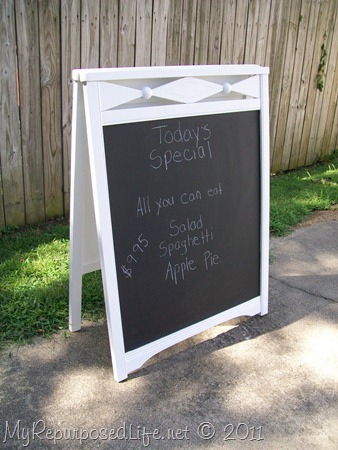 Today's
Special
All you can eat
$9.95
Salad
Spaghetti
Apple Pie
MyRepurposedLife.net © 2011